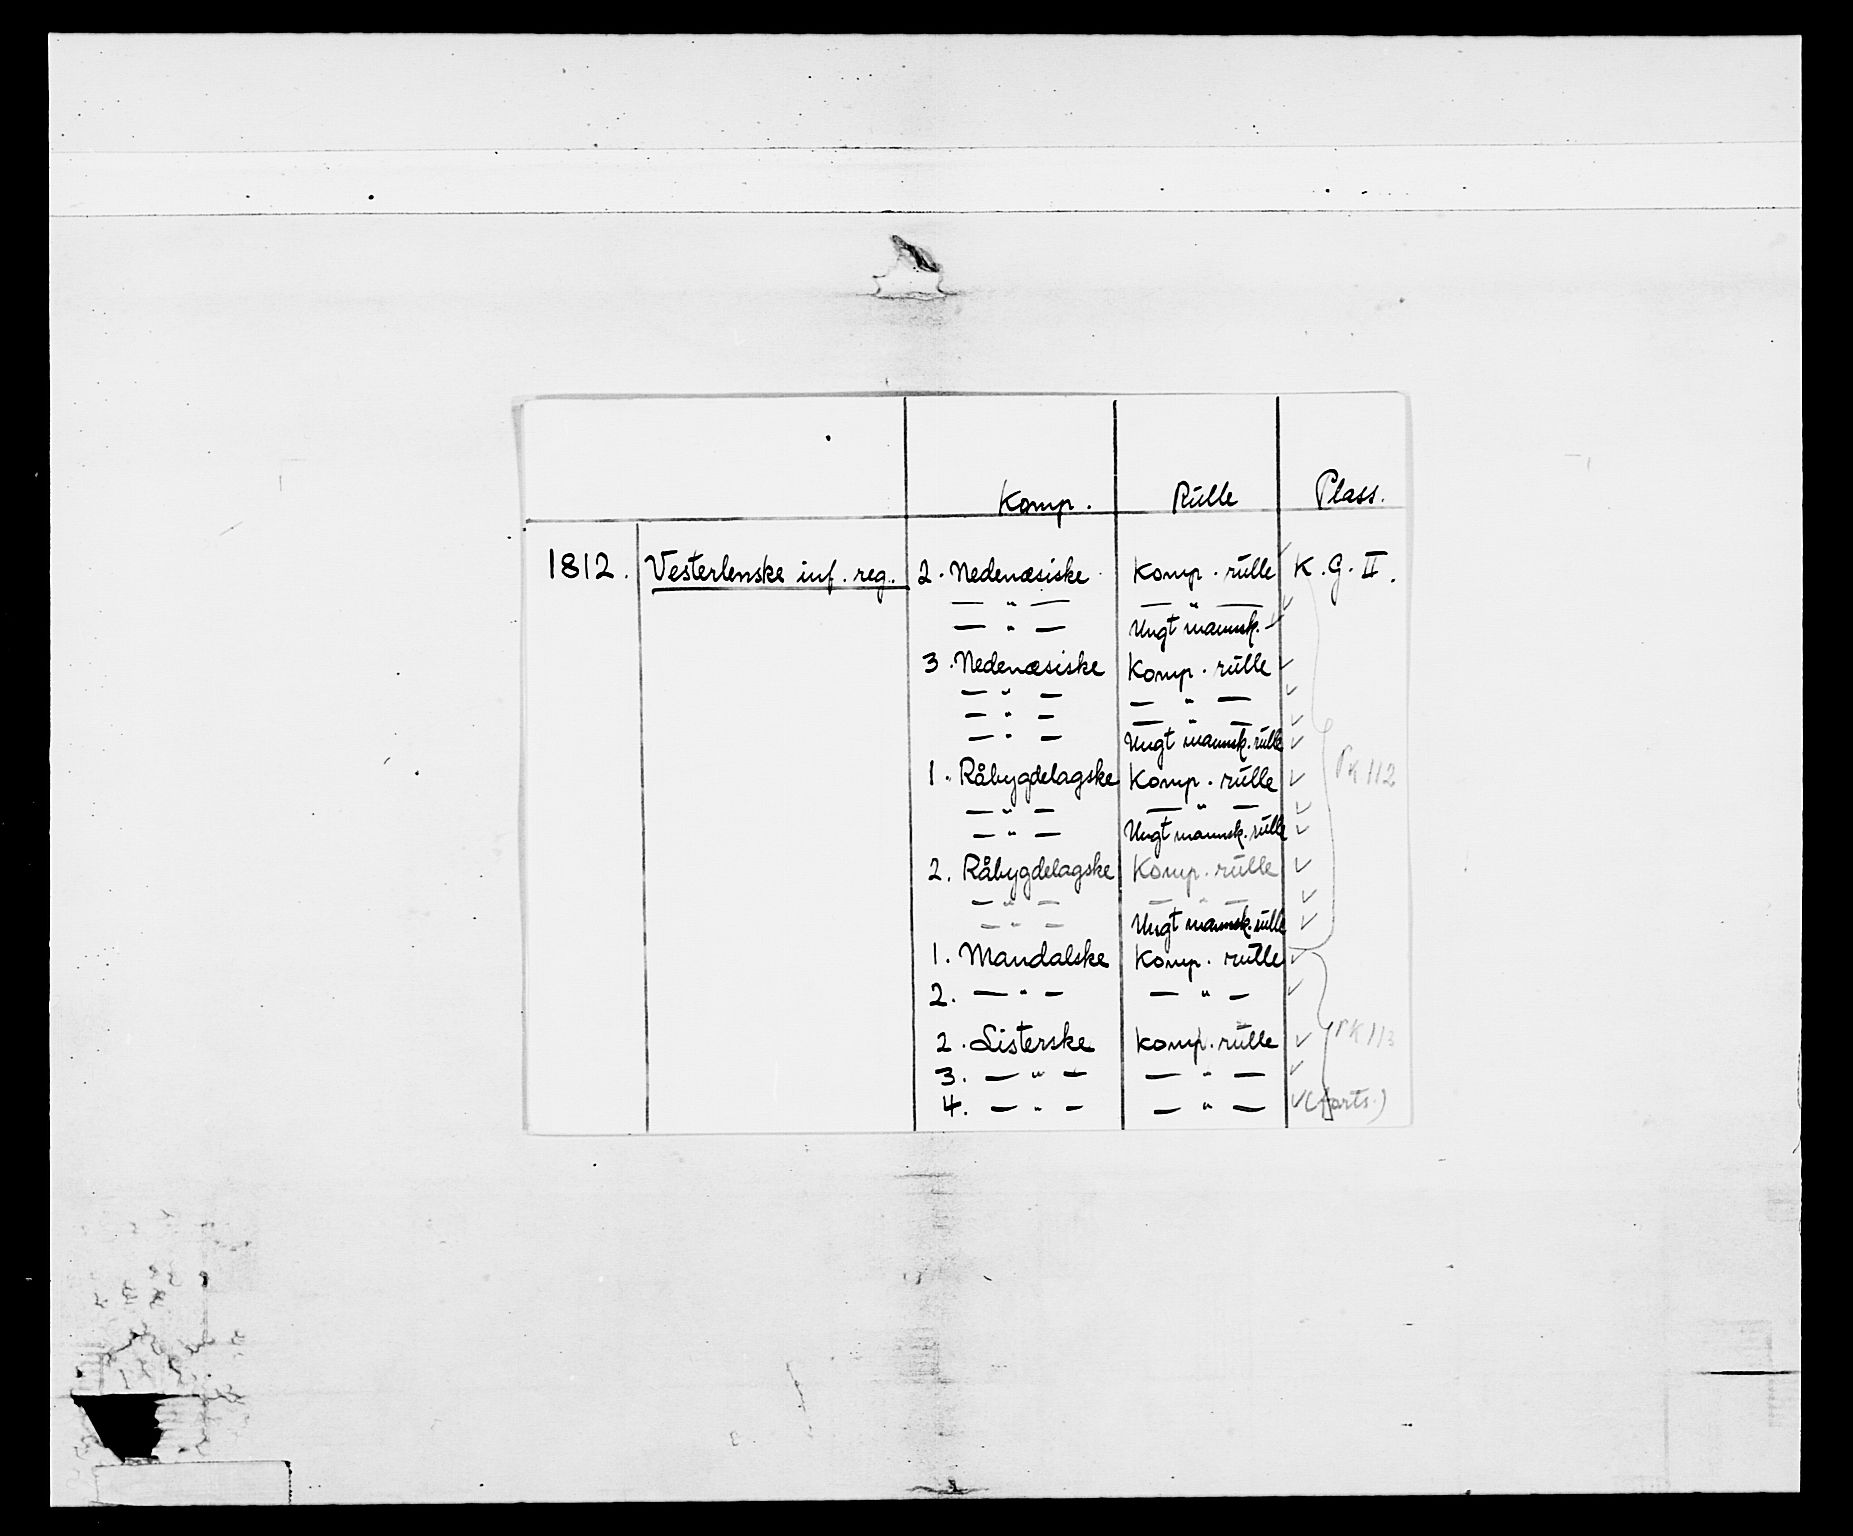 Komp. Rulle Plass.
1812. Vesterlenske inf. reg. 2. Nedenæsiske Komp. rulle K.G. II.
— " — — " — ✓
— " — Ungt mannsk. ✓
3. Nedenæsiske Komp. rulle ✓
— " — — " — ✓
— " — — " — ✓
— " — Ungt mannsk. rulle ✓
1. Råbygdelagske Komp. rulle ✓ PK 112
— " — — " — ✓
— " — Ungt mannsk. rulle ✓
2. Råbygdelagske Komp. rulle ✓
— " — — " — ✓
— " — Ungt mannsk. rulle ✓
1. Mandalske Komp. rulle ✓
2. — " — — " — ✓
2. Listerske Komp. rulle ✓ PK 113
3. — " — — " — ✓
4. — " — — " — ✓ (forts.)